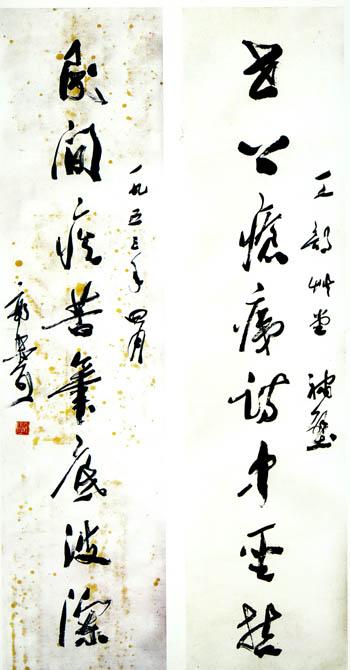 工部艸堂補壁
世上瘡痍詩中聖哲
一九五三年四月
民間疾苦筆底波瀾
郭沫若